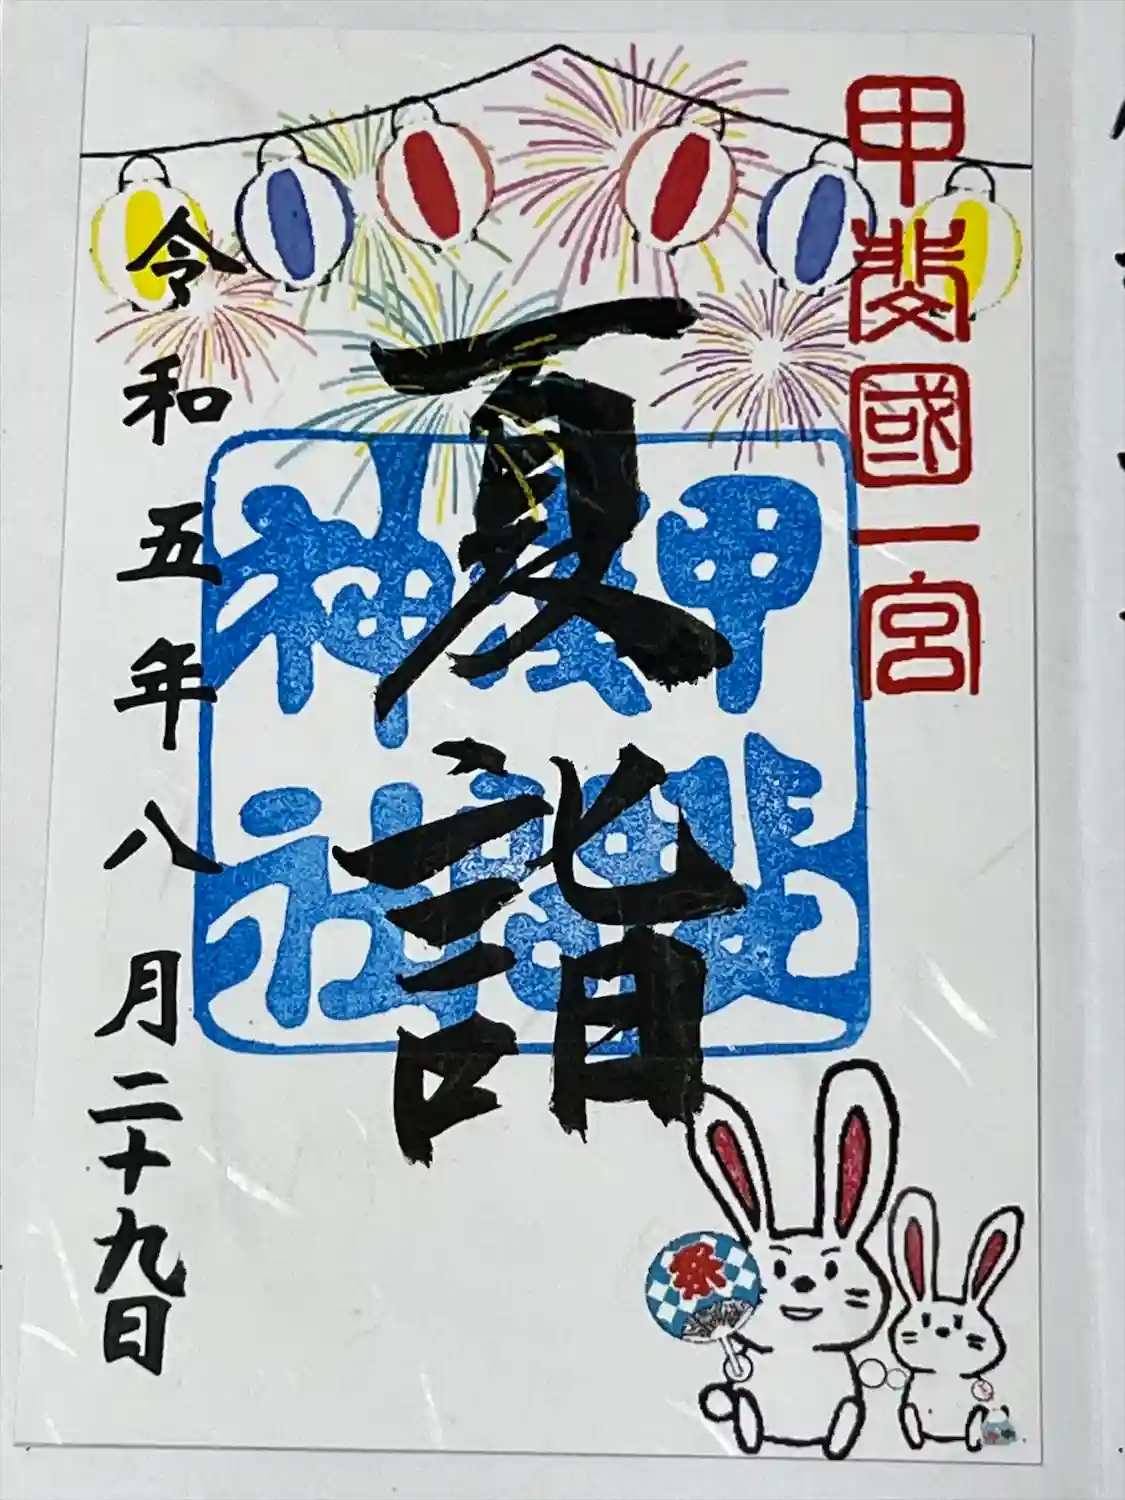 甲斐國一宮
夏詣
甲斐國一宮淺間神社
令和五年八月二十九日
祭